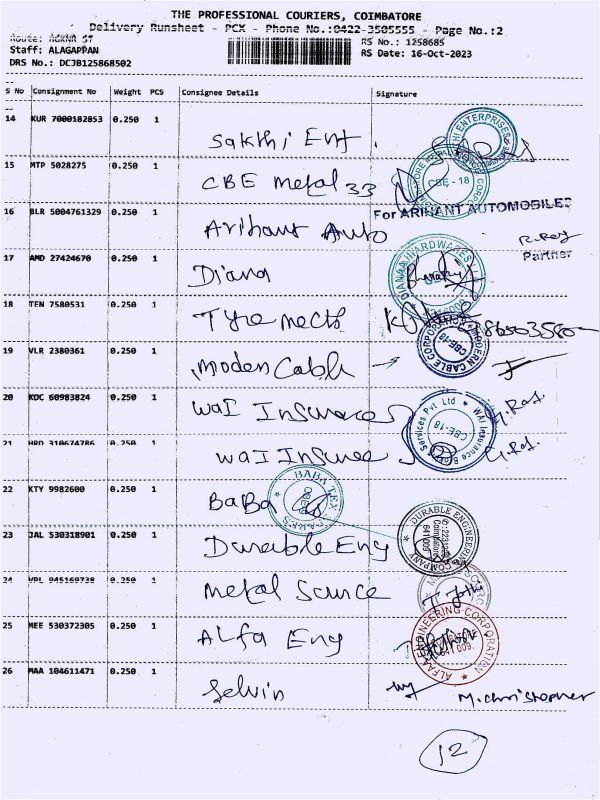 THE PROFESSIONAL COURIERS, COIMBATORE
Delivery Runsheet - PCX - Phone No.:0422-3505555 Page No.:2
RS No.: 1258685
Staff: ALAGAPPAN
RS Date: 16-Oct-2023
DRS No.: DCJB125868502
S No Consignment No Weight PCS Consignee Details Signature
14 KUR 7000182053 0.250 1 Sakthi Ent
15 MTP 5028275 0.250 1 CBE metal 33 CBE - 18
16 BLR 5004761329 0.250 1 Arihant Auto For ARIHANT AUTOMOBILES
Partner
17 AMD 27424670 0.250 1 Diana
18 TEN 7580531 0.250 1 Tyre mects
19 VLR 2380361 0.250 1 Moden Cable MODERN CABLE CORPORATION CBE-18
20 KOC 60983824 0.250 1 WaI Insurances CBE-18
21 HRD 310674786 0.250 1 WaI Insuree
22 KTY 9982600 0.250 1 BaBa BABA TEX
23 JAL 530318901 0.250 1 Durable Eng DURABLE ENGINEERING COMPANY Coimbatore 641 009
24 945169738 0.250 1 Metal Source
25 MEE 530372305 0.250 1 ALfa Eng ALFA ENGINEERING CORPORATION
26 MAA 104611471 0.250 1 Selvin M.christopher
12